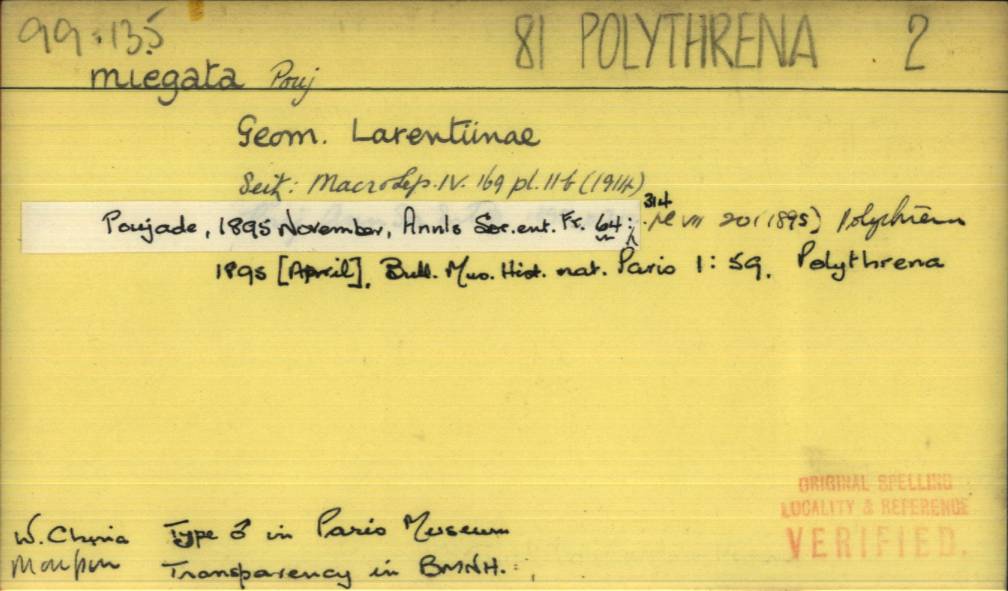 99.135 81 POLYTHRENA 2
miegata Pouj
Geom. Larentiinae
Seitz: Macrolep. IV. 169 pl. 11-b (1914)
Poujade, 1895 November, Annls Soc. ent. Fr. 64: 314 pl VII 20 (1895) Polythrena
1895 [April], Bull. Mus. Hist. nat. Paris 1: 59. Polythrena
ORIGINAL SPELLING
LOCALITY & REFERENCE
VERIFIED.
W. China Type ♂ in Paris Museum
Moupin Transparency in BMNH.